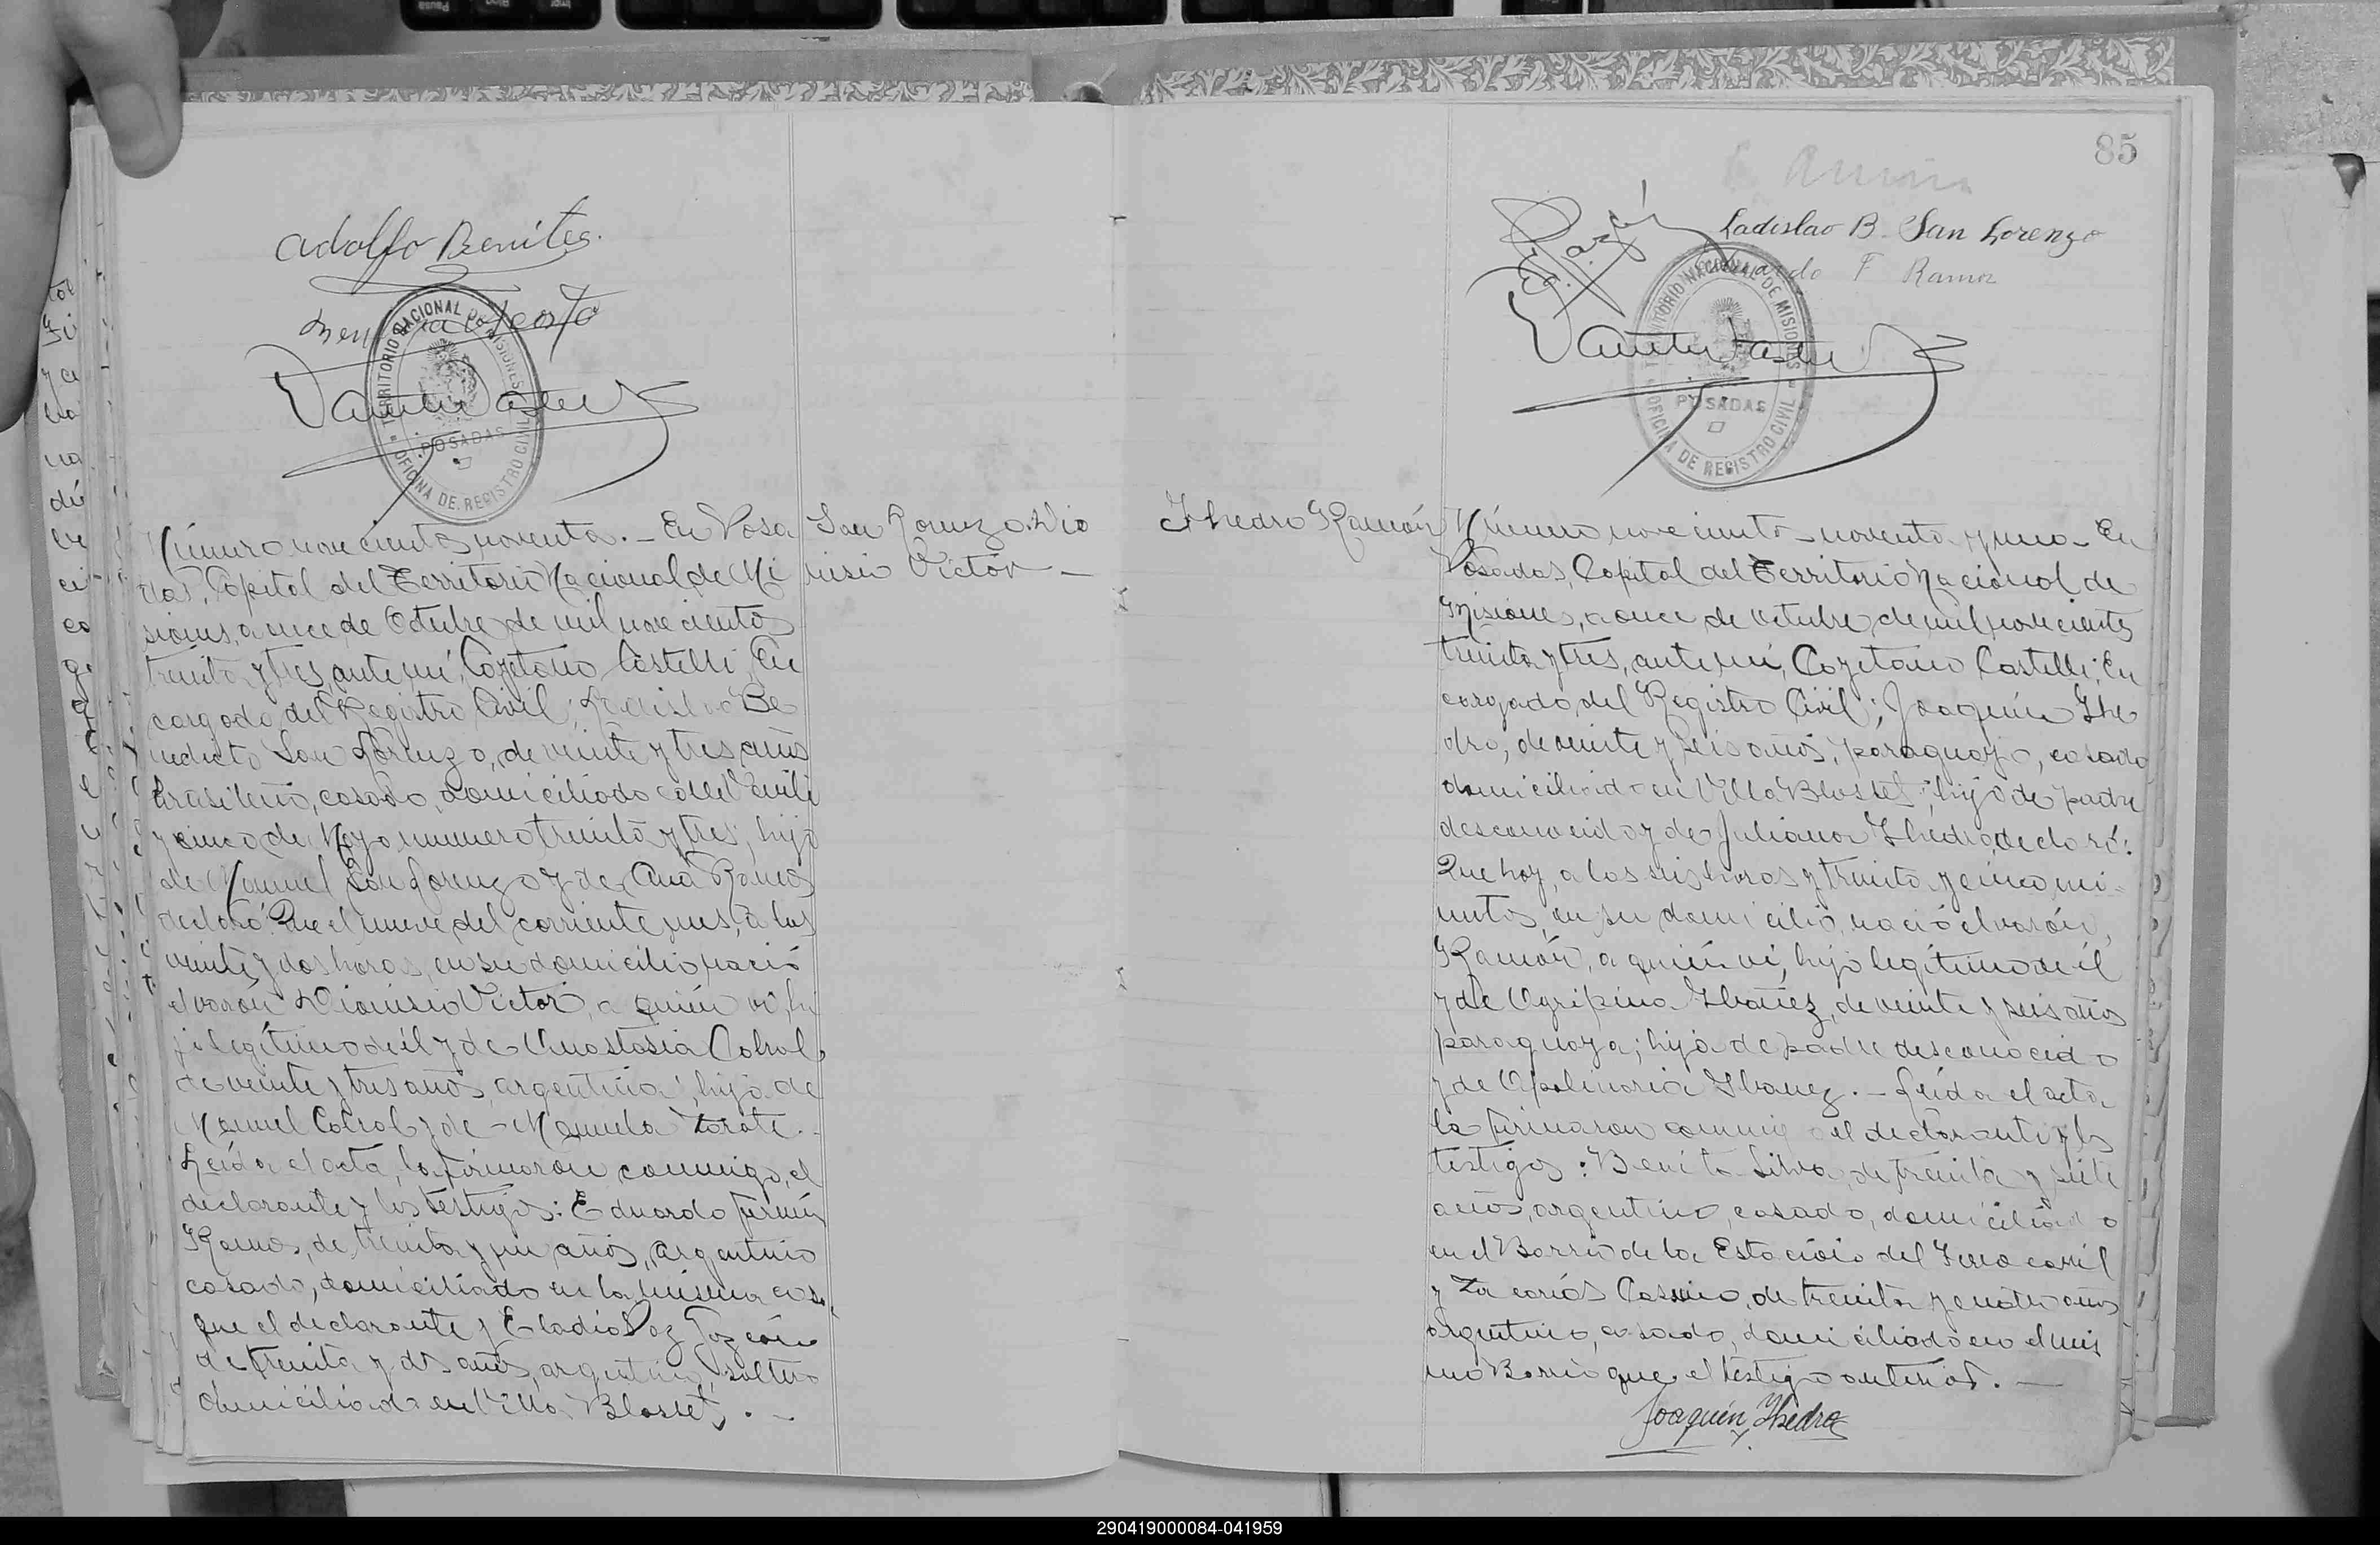 Adolfo Benites.
TERRITORIO NACIONAL DE MISIONES
POSADAS
OFICINA DE REGISTRO CIVIL
Número novecientos noventa. - En Posa
das, Capital del Territorio Nacional de Mi
siones, a once de Octubre de mil novecientos
treinta y tres, ante mí, Cayetano Castelli, En
cargado del Registro Civil; Ladislao Be
nedicto San Lorenzo, de veinte y tres años
brasileño, casado, domiciliado calle Veinti
y cinco de Mayo numero treinta y tres; hijo
de Manuel San Lorenzo y de Ana Ramos
declaró: Que el nueve del corriente mes, a las
veinte y dos horas, en su domicilio nació
el varón Dionisio Victor, a quién ví, hi
jo legítimo de él y de Anastasia Cabral
de veinte y tres años, argentina; hija de
Manuel Cabral y de - Manuela Zarate.
Leída el acta, la firmaron conmigo, el
declarante y los testigos: Eduardo Fermín
Ramos, de treinta y un años, argentino
casado, domiciliado en la misma casa
que el declarante y Eladio Paz
de treinta y dos años, argentino, soltero
domiciliado en Villa Blosset. -
San Lorenzo Dio
nisio Victor -
85
Ladislao B. San Lorenzo
F Ramos
TERRITORIO NACIONAL DE MISIONES
POSADAS
OFICINA DE REGISTRO CIVIL
Yhedro Ramón
Número novecientos noventa y uno - En
Posadas, Capital del Territorio Nacional de
Misiones, a once de Octubre de mil novecientos
treinta y tres, ante mí, Cayetano Castelli; En
cargado del Registro Civil; Joaquín Yhe
dro, de veinte y seis años, paraguayo, casado
domiciliado en Villa Blosset; hijo de padre
desconocido y de Juliana Yhedro, declaró:
Que hoy, a las seis horas y treinta y cinco mi-
nutos, en su domicilio, nació el varón,
Ramón, a quién ví, hijo legítimo de él
y de Agripina Ybañez, de veinte y seis años
paraguaya; hija de padre desconocido
y de Apolinaria Ybanez. - Leída el acta
la firmaron conmigo el declarante y los
testigos: Benito Silva, de treinta y siete
años, argentino, casado, domiciliado
en el Barrio de la Estación del Ferro carril
y Zacarías de treinta y cuatro años
argentino, casado, domiciliado en el mis
mo Barrio que el testigo anterior. -
Joaquín Yhedro
290419000084-041959